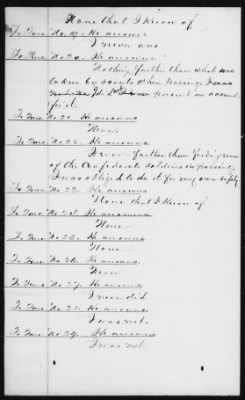 None that I know of
To Ques No. 19. He answers
I never was
To Ques No. 20. He answers
Nothing further than what was
taken by scouts when
To Ques No. 21. He answers
Never
To Ques No. 22. He answers
Never further than feeding some
of the Confederate soldiers in passing
I was obliged to do it for my own safety
To Ques No. 23. He answers
None that I know of
To Ques No. 24. He answers
None
To Ques No. 25. He answers
None
To Ques No. 26. He answers
Never
To Ques No. 27. He answers
I never did
To Ques No. 28. He answers
I was not
To Ques No. 29. He answers
I was not